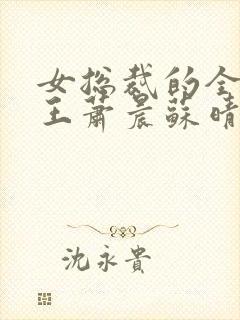 女总裁的全
王萧晨苏晴
沈永贵